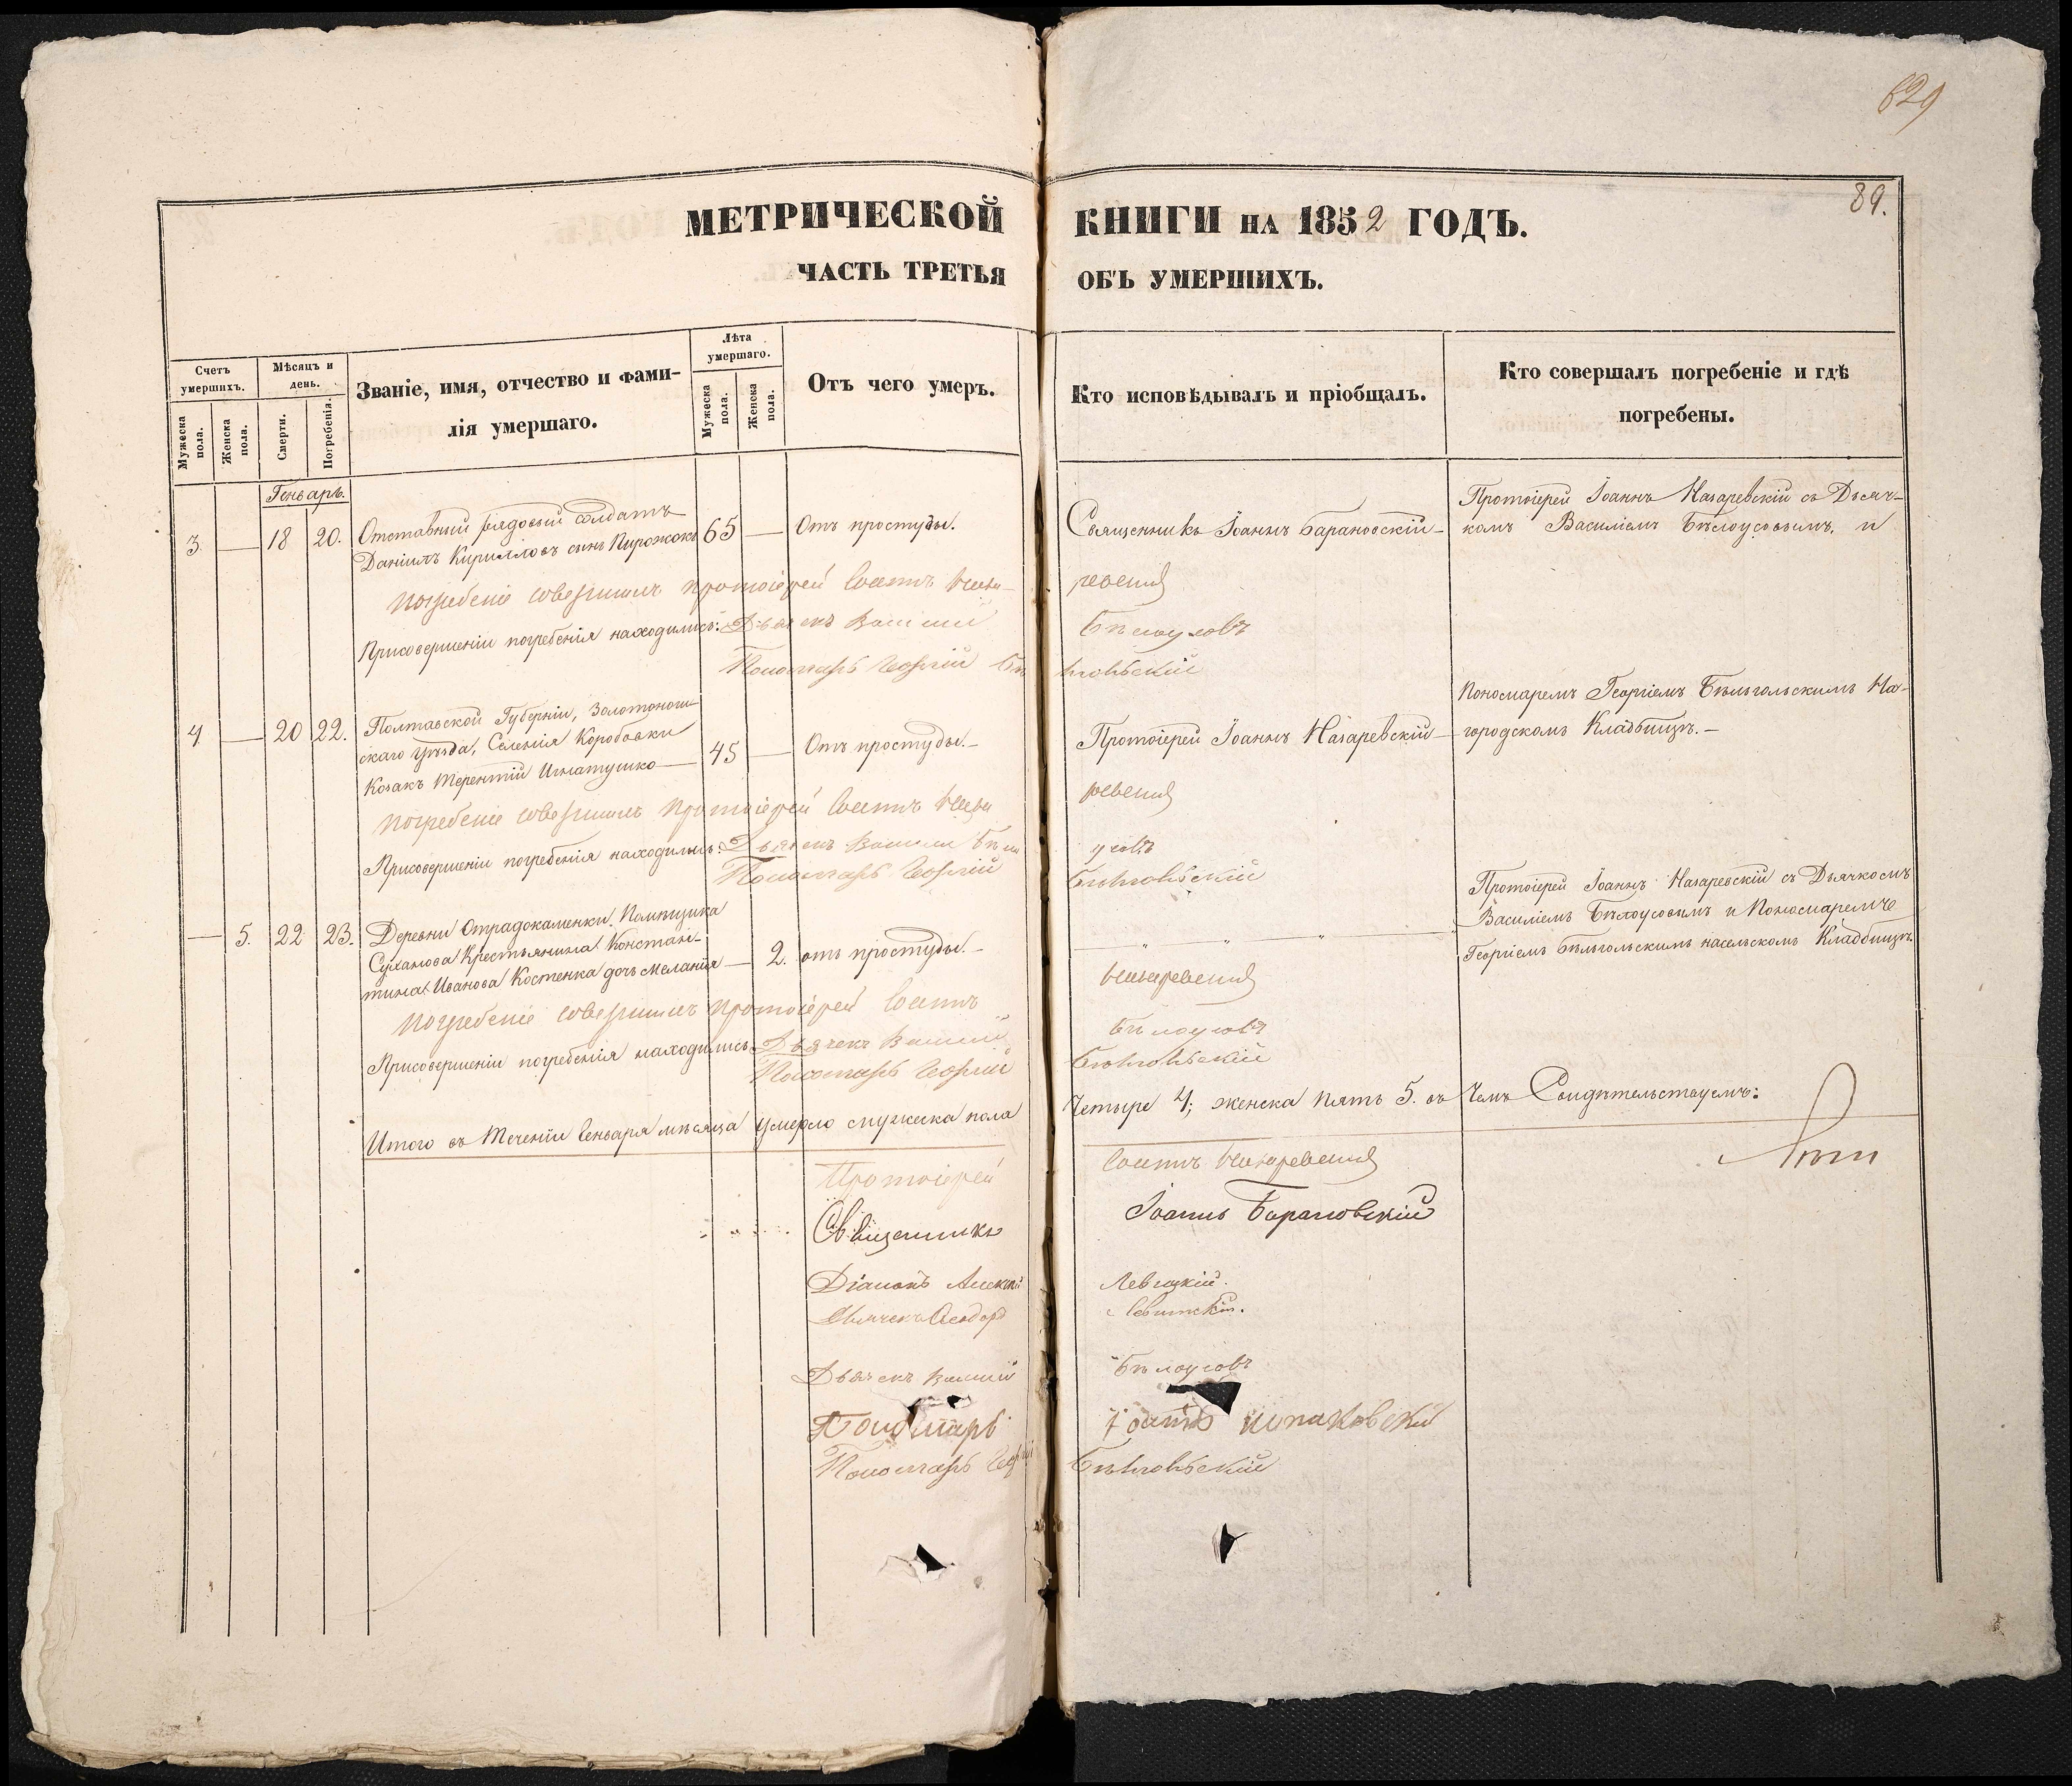 629
89.
МЕТРИЧЕСКОЙ КНИГИ НА 1852 ГОДЪ.
ЧАСТЬ ТРЕТЬЯ ОБЪ УМЕРШИХЪ.
Счетъ умершихъ.
Мужеска пола.
Женска пола.
Мѣсяцъ и день.
Смерти.
Погребенія.
Званіе, имя, отчество и фами-
лія умершаго.
Лѣта умершаго.
Мужеска пола.
Женска пола.
Отъ чего умеръ.
Кто исповѣдывалъ и пріобщалъ.
Кто совершалъ погребеніе и гдѣ
погребены.
Генварь.
3. — 18 20.
Отставный рядовый солдатъ
Даніилъ Кирилловъ сынъ Пирожокъ
65 — Отъ простуды.
Священникъ Іоаннъ Барановскій
Протоіерей Іоаннъ Назаревскій съ Дьяч-
комъ Василіемъ Бѣлоусовымъ, и
Погребеніе совершилъ Протоіерей Іоаннъ Наза-
ревскій
Присовершеніи погребенія находились: Дьячекъ Василій Бѣлоусовъ
Пономарь Георгій Бѣльгольскій
4 — 20 22.
Полтавской Губерніи, Золотонош-
скаго уѣзда, Селенія Коробовки
Козакъ Терентій Игнатушко
45 — Отъ простуды.—
Протоіерей Іоаннъ Назаревскій
Пономаремъ Георгіемъ Бѣльгольскимъ На-
городскомъ Кладбищѣ.—
Погребеніе совершилъ Протоіерей Іоаннъ Наза
ревскій
Присовершеніи погребенія находились: Дьячекъ Василій Бѣло
усовъ
Пономарь Георгій Бѣльгольскій
— 5. 22 23.
Деревни Отрадокаменки, Помѣщика
Суханова Крестьянина Констан-
тина Иванова Костенка дочь Меланія
— 2. отъ простуды.—
Протоіерей Іоаннъ Назаревскій съ Дьячкомъ
Василіемъ Бѣлоусовымъ и Пономаремъ
Георгіемъ Бѣльгольскимъ насельскомъ Кладбищѣ.
Погребеніе совершилъ Протоіерей Іоаннъ
Назаревскій
Присовершеніи погребенія находились Дьячекъ Василій
Бѣлоусовъ
Пономарь Георгій Бѣльгольскій
Итого въ теченіи Генваря мѣсяца умерло мужеска пола Четыре 4; женска пять 5. въ Чемъ Свидѣтельствуемъ:
Протоіерей Іоаннъ Назаревскій
Священникъ Іоаннъ Барановскій
Діаконъ Алексій Левицкій.
Дьячекъ Ѳеодоръ Левитскій.
Дьячекъ Василій Бѣлоусовъ
Пономарь Іоаннъ Шпаковскій
Пономарь Георгій Бѣльгольскій